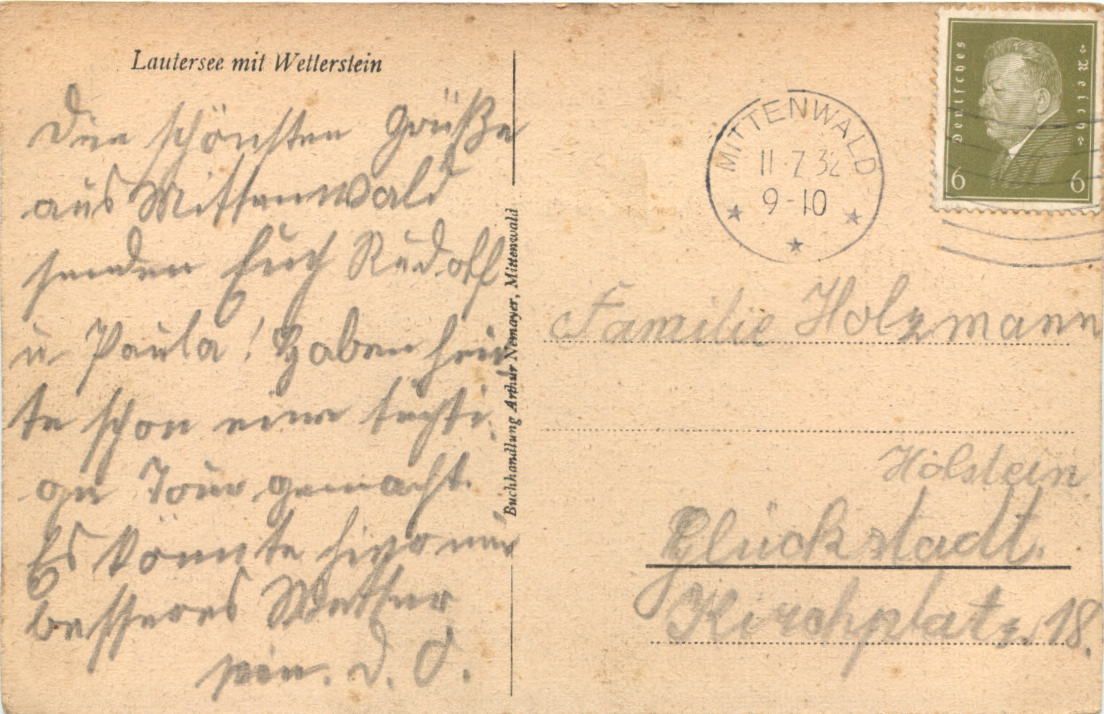 Lautersee mit Wetterstein
Die schönsten Grüße
aus Mittenwald
senden Euch Rudolf
u. Paula! Haben heu-
te schon eine tüchti-
ge Tour gemacht.
Es könnte hier nur
besseres Wetter
sein. D. O.
Buchhandlung Arthur Nemayer, Mittenwald
MITTENWALD
11.7.32
9-10
Deutsches Reich
6 6
Familie Holzmann
Holstein
Glückstadt.
Kirchplatz 18.